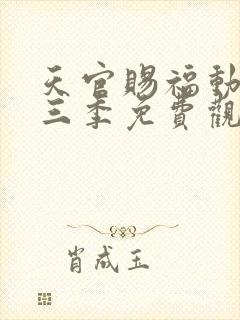 天官賜福動
三季免費觀
肖成玉